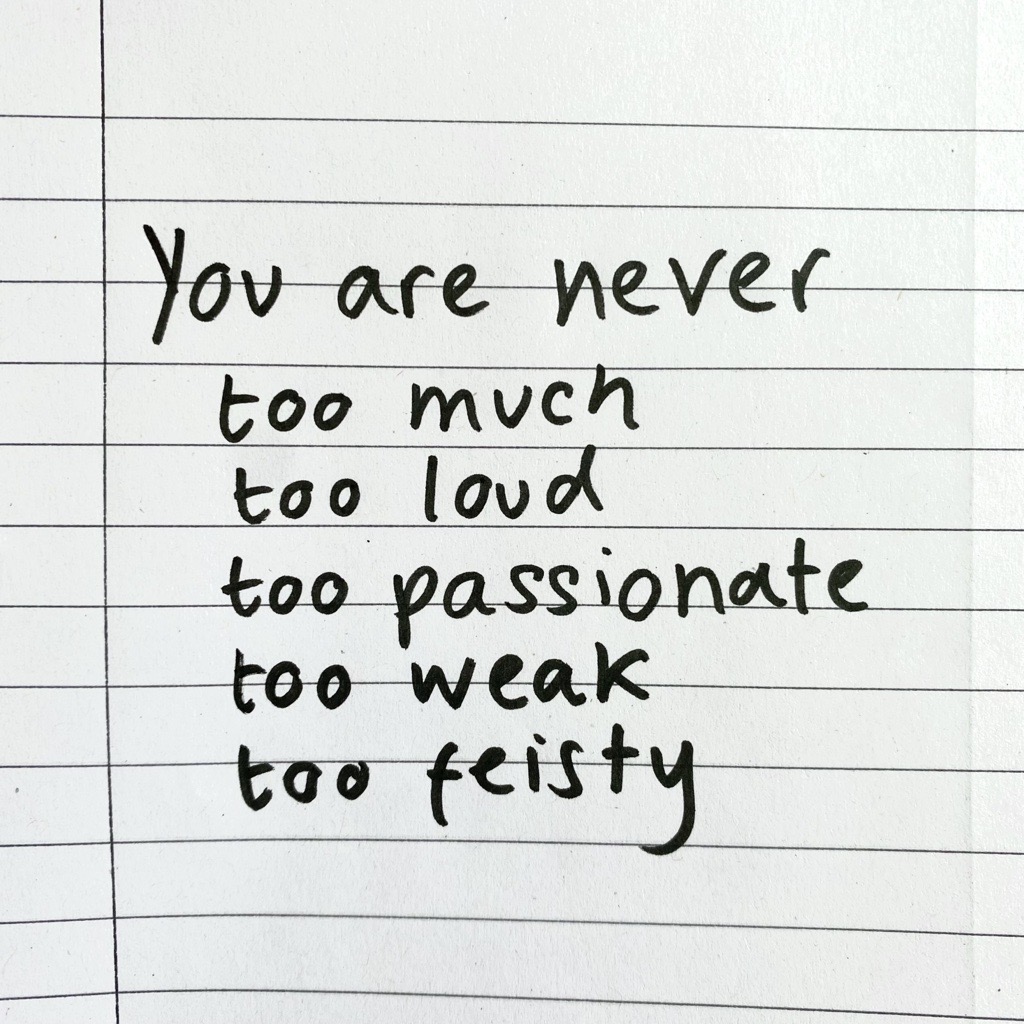 You are never
too much
too loud
too passionate
too weak
too feisty